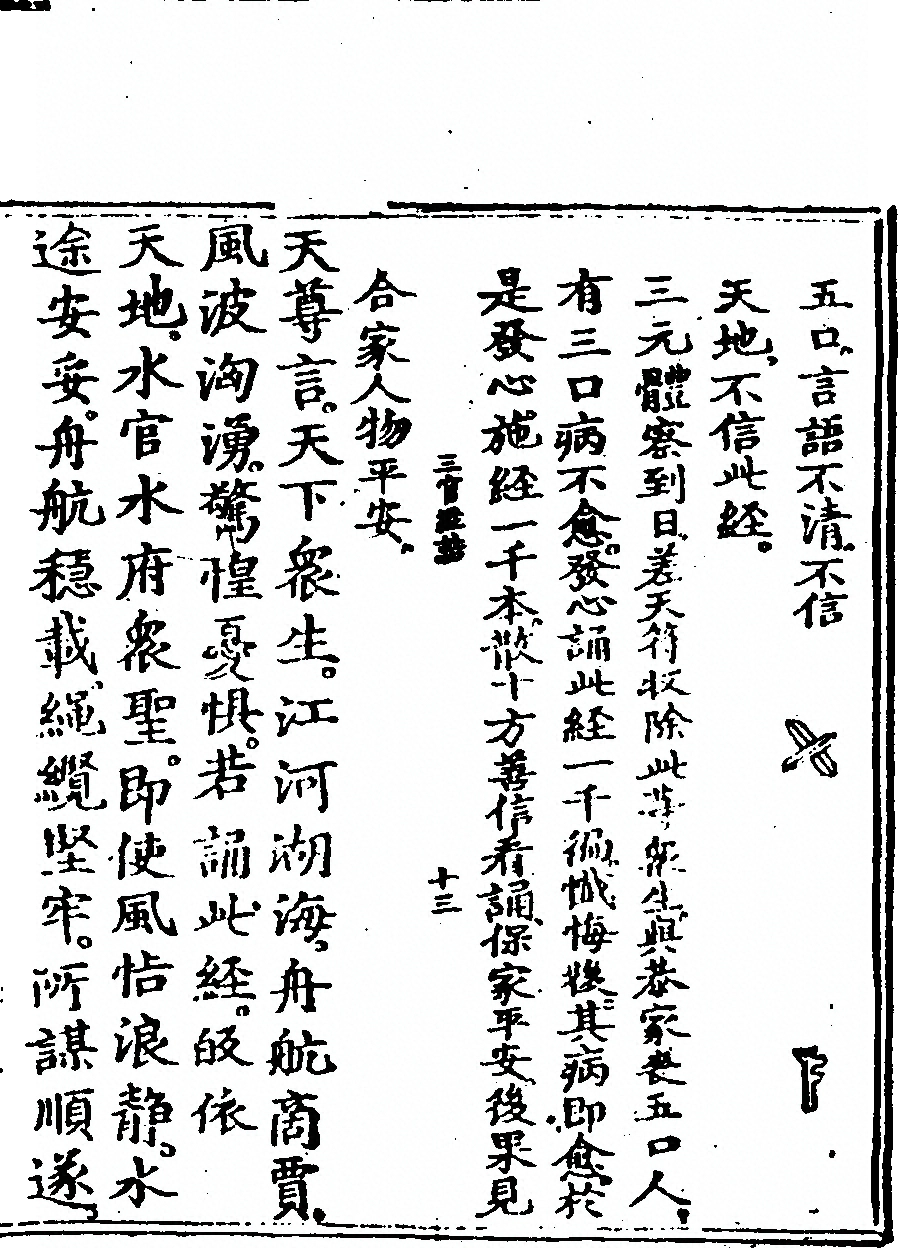 五口、言語不清、不信
天地、不信此経。
三元體察到日、差天符收除此等衆生、與恭家喪五口人、
有三口病不愈。發心誦此経一千徧、懺悔後、其病即愈。於
是發心施経一千本、散十方善信看誦、保家平安、後果見
合家人物平安。
三官経
十三
天尊言。天下衆生。江河湖海、舟航商賈、
風波洶湧。驚惶憂惧。若誦此経。皈依
天地、水官水府衆聖。即使風恬浪静。水
途安妥。舟航穏載、繩纜堅牢。所謀順遂、